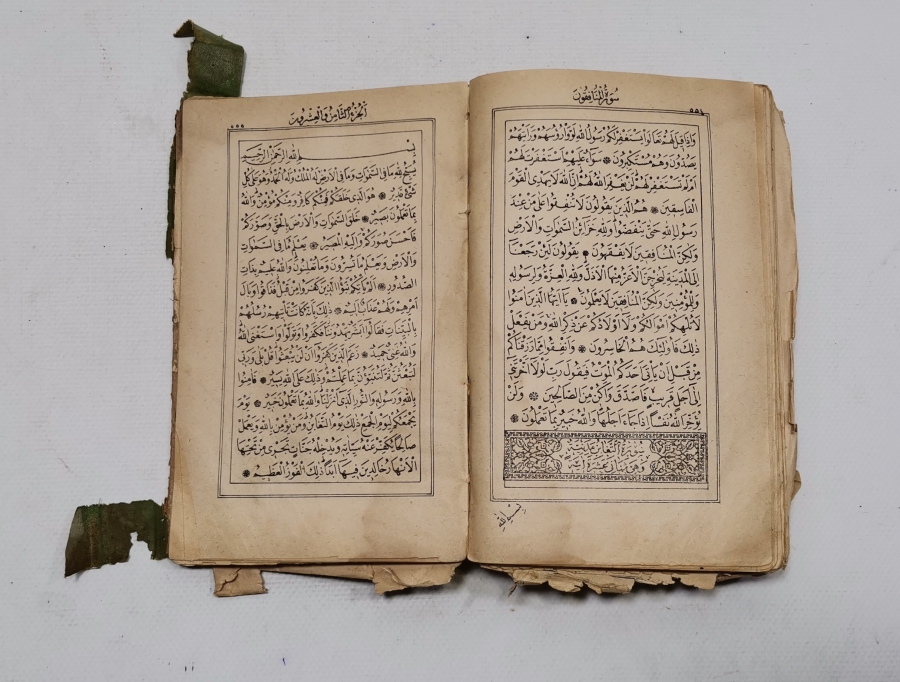 سُورَةُ الْمُنَافِقُونَ
٥٥٤
وَاِذَا قِيلَ لَهُمْ تَعَالَوْا يَسْتَغْفِرْ لَكُمْ رَسُولُ اللهِ لَوَّوْا رُؤُسَهُمْ وَرَاَيْتَهُمْ
يَصُدُّونَ وَهُمْ مُسْتَكْبِرُونَ ❁ سَوَاءٌ عَلَيْهِمْ اَسْتَغْفَرْتَ لَهُمْ
اَمْ لَمْ تَسْتَغْفِرْ لَهُمْ لَنْ يَغْفِرَ اللهُ لَهُمْ اِنَّ اللهَ لَا يَهْدِى الْقَوْمَ
الْفَاسِقِينَ ❁ هُمُ الَّذِينَ يَقُولُونَ لَا تُنْفِقُوا عَلٰى مَنْ عِنْدَ
رَسُولِ اللهِ حَتّٰى يَنْفَضُّوا وَلِلّٰهِ خَزَائِنُ السَّمٰوَاتِ وَالْاَرْضِ
وَلٰكِنَّ الْمُنَافِقِينَ لَا يَفْقَهُونَ ❁ يَقُولُونَ لَئِنْ رَجَعْنَا
اِلَى الْمَدِينَةِ لَيُخْرِجَنَّ الْاَعَزُّ مِنْهَا الْاَذَلَّ وَلِلّٰهِ الْعِزَّةُ وَلِرَسُولِهِ
وَلِلْمُؤْمِنِينَ وَلٰكِنَّ الْمُنَافِقِينَ لَا يَعْلَمُونَ ❁ يَا اَيُّهَا الَّذِينَ اٰمَنُوا
لَا تُلْهِكُمْ اَمْوَالُكُمْ وَلَا اَوْلَادُكُمْ عَنْ ذِكْرِ اللهِ وَمَنْ يَفْعَلْ
ذٰلِكَ فَاُولٰئِكَ هُمُ الْخَاسِرُونَ ❁ وَاَنْفِقُوا مِمَّا رَزَقْنَاكُمْ
مِنْ قَبْلِ اَنْ يَاْتِىَ اَحَدَكُمُ الْمَوْتُ فَيَقُولَ رَبِّ لَوْلَا اَخَّرْتَنِى
اِلٰى اَجَلٍ قَرِيبٍ فَاَصَّدَّقَ وَاَكُنْ مِنَ الصَّالِحِينَ ❁ وَلَنْ
يُؤَخِّرَ اللهُ نَفْسًا اِذَا جَاءَ اَجَلُهَا وَاللهُ خَبِيرٌ بِمَا تَعْمَلُونَ ❁
سُورَةُ التَّغَابُنِ مَدَنِيَّةٌ
وَهِىَ ثَمَانِ عَشْرَةَ اٰيَةً
بِسْمِ اللهِ
اَلْجُزْءُ الثَّامِنُ وَالْعِشْرُونَ
٥٥٥
بِسْمِ اللهِ الرَّحْمٰنِ الرَّحِيمِ
يُسَبِّحُ لِلّٰهِ مَا فِى السَّمٰوَاتِ وَمَا فِى الْاَرْضِ لَهُ الْمُلْكُ وَلَهُ الْحَمْدُ وَهُوَ عَلٰى كُلِّ
شَىْءٍ قَدِيرٌ ❁ هُوَ الَّذِى خَلَقَكُمْ فَمِنْكُمْ كَافِرٌ وَمِنْكُمْ مُؤْمِنٌ وَاللهُ
بِمَا تَعْمَلُونَ بَصِيرٌ ❁ خَلَقَ السَّمٰوَاتِ وَالْاَرْضَ بِالْحَقِّ وَصَوَّرَكُمْ
فَاَحْسَنَ صُوَرَكُمْ وَاِلَيْهِ الْمَصِيرُ ❁ يَعْلَمُ مَا فِى السَّمٰوَاتِ
وَالْاَرْضِ وَيَعْلَمُ مَا تُسِرُّونَ وَمَا تُعْلِنُونَ وَاللهُ عَلِيمٌ بِذَاتِ
الصُّدُورِ ❁ اَلَمْ يَاْتِكُمْ نَبَؤُا الَّذِينَ كَفَرُوا مِنْ قَبْلُ فَذَاقُوا وَبَالَ
اَمْرِهِمْ وَلَهُمْ عَذَابٌ اَلِيمٌ ❁ ذٰلِكَ بِاَنَّهُ كَانَتْ تَاْتِيهِمْ رُسُلُهُمْ
بِالْبَيِّنَاتِ فَقَالُوا اَبَشَرٌ يَهْدُونَنَا فَكَفَرُوا وَتَوَلَّوْا وَاسْتَغْنَى اللهُ
وَاللهُ غَنِىٌّ حَمِيدٌ ❁ زَعَمَ الَّذِينَ كَفَرُوا اَنْ لَنْ يُبْعَثُوا قُلْ بَلٰى وَرَبِّى
لَتُبْعَثُنَّ ثُمَّ لَتُنَبَّؤُنَّ بِمَا عَمِلْتُمْ وَذٰلِكَ عَلَى اللهِ يَسِيرٌ ❁ فَاٰمِنُوا
بِاللهِ وَرَسُولِهِ وَالنُّورِ الَّذِى اَنْزَلْنَا وَاللهُ بِمَا تَعْمَلُونَ خَبِيرٌ ❁ يَوْمَ
يَجْمَعُكُمْ لِيَوْمِ الْجَمْعِ ذٰلِكَ يَوْمُ التَّغَابُنِ وَمَنْ يُؤْمِنْ بِاللهِ وَيَعْمَلْ
صَالِحًا يُكَفِّرْ عَنْهُ سَيِّئَاتِهِ وَيُدْخِلْهُ جَنَّاتٍ تَجْرِى مِنْ تَحْتِهَا
الْاَنْهَارُ خَالِدِينَ فِيهَا اَبَدًا ذٰلِكَ الْفَوْزُ الْعَظِيمُ ❁